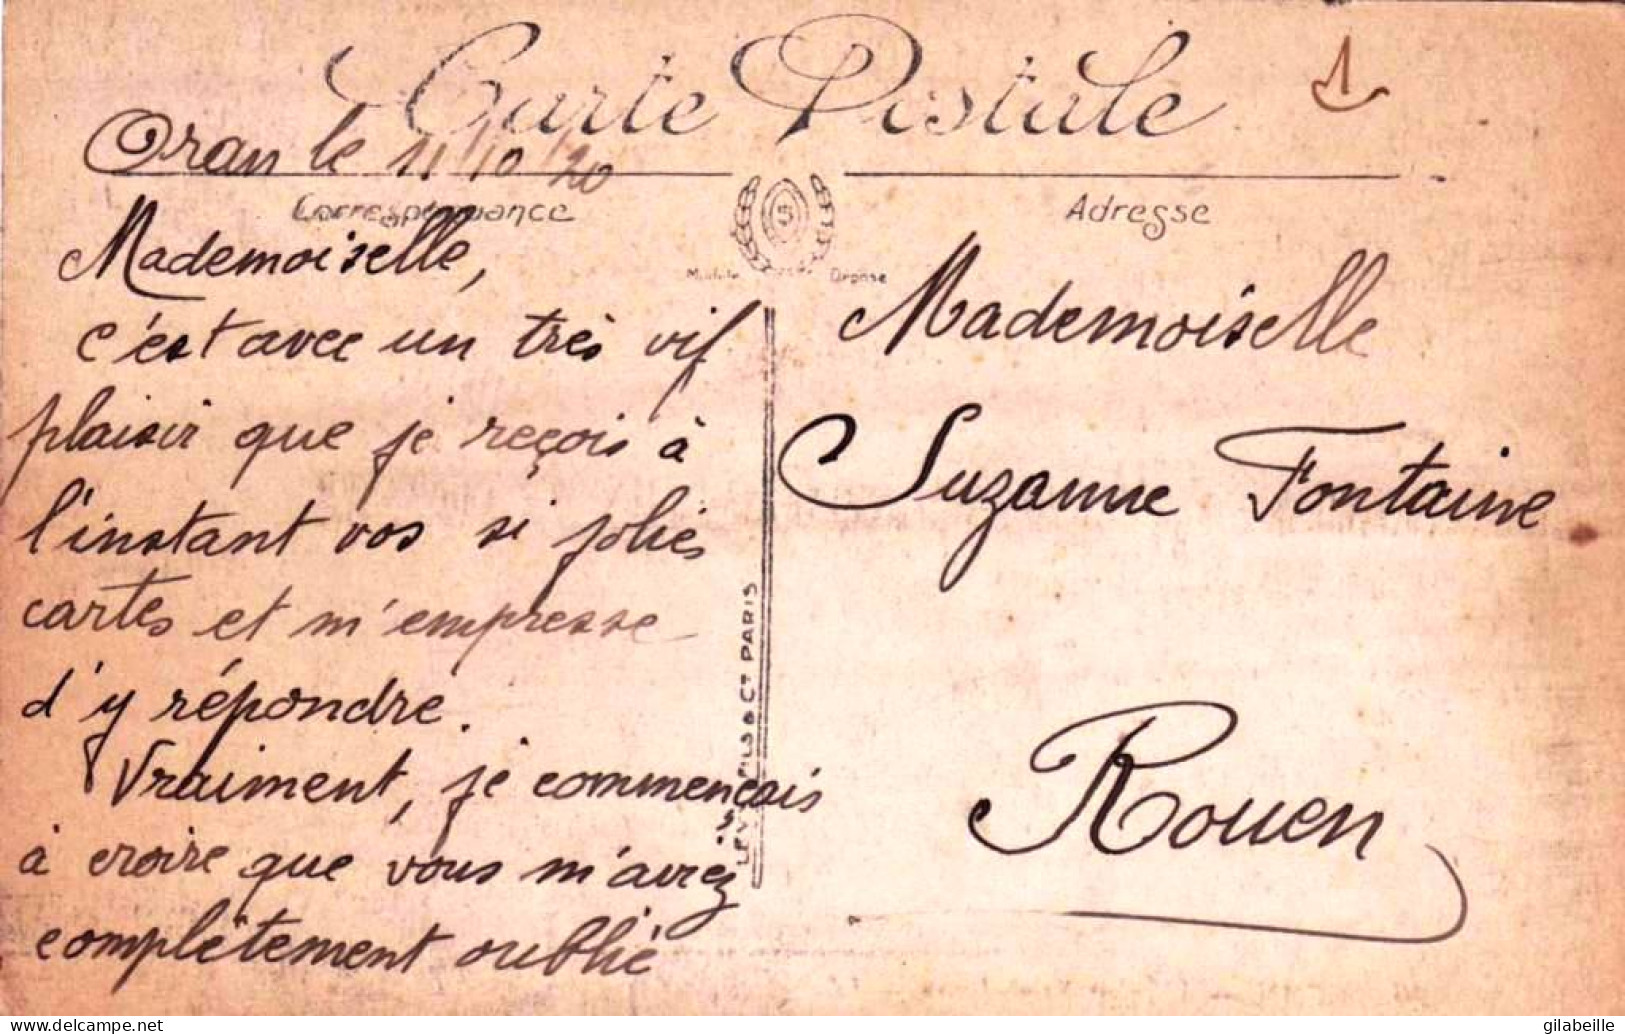 Carte Postale
1
Oran le 11/10/20
Correspondance
Adresse
S
Modèle Déposé
Mademoiselle,
c'est avec un très vif
plaisir que je reçois à
l'instant vos si jolies
cartes et m'empresse
d'y répondre.
Vraiment, je commençais
à croire que vous m'aviez
complètement oublié
LEVY FILS & Cie PARIS
Mademoiselle
Suzanne Fontaine
Rouen
www.delcampe.net
gilabeille